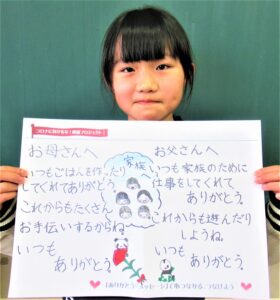 コロナに負けるな！プロジェクト！
お母さんへ
いつもごはんを作ったり
してくれてありがとう。
これからもたくさん
お手伝いするからね。
いつも
ありがとう。
家族
お父さんへ
いつも家族のために
仕事をしてくれて
ありがとう。
これからも遊んだり
しようね。
いつも
ありがとう。
「ありがとうメッセージ」で つながる つなげよう